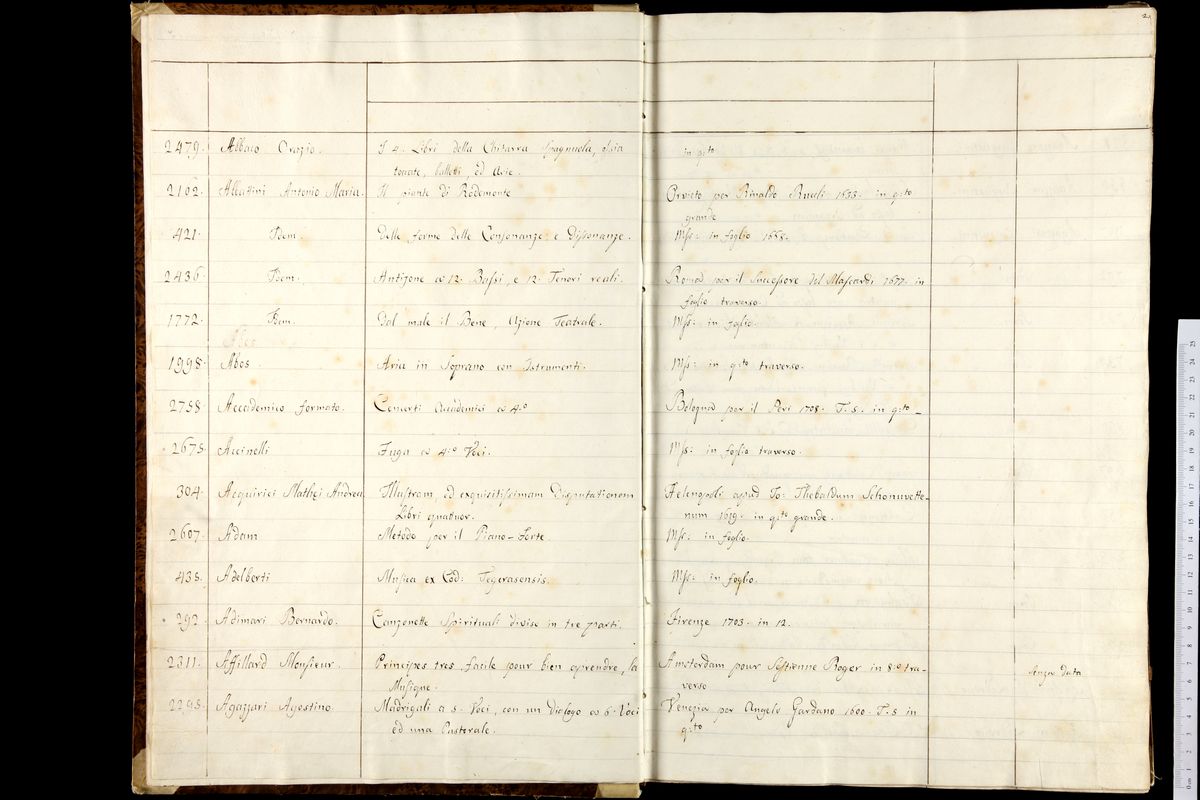 2
2479. Albaco Orazio. I 4. Libri della Chitarra Spagnuola, ossia in q:to
tocate, balletti, ed Arie.
2102. Abbattini Antonio Maria. Il pianto di Rodomonte Orvieto per Rinaldo Ruuli 1633. in q:to
grande
421. Dem. Delle forme delle Consonanze e Dissonanze. Mss: in foglio 1668.
2436. Dem. Antifone a 12. Bassi, e 12. Tenori reali. Roma per il Successore del Mascardi 1677. in
foglio traverso.
1772. Dem. Dal male il Bene, Azione Teatrale. Mss: in foglio.
Abos
1998. Abos. Aria in Soprano con Istrumenti. Mss: in q:to traverso.
2758. Accademico formato. Concerti Accademici a 4.o Bologna per il Peri 1708. T. 5. in q:to
2675. Accinelli Fuga a 4:o Voci. Mss: in foglio traverso.
304. Acquirici Mathei Andrea Illustrom, ed exquisitissimam Disputationom Helenopoli apud Jo: Thebaldum Schonuvette-
Libri quattuor. num 1629. in q:to grande.
2607. Adam Metodo per il Piano-Forte. Mss: in foglio.
435. Adelberti Musica ex Cod: Tegerasensis. Mss: in foglio.
292. Adimari Bernardo. Canzonette Spirituali divise in tre parti. Firenze 1703. in 12.
2311. Affillard Monsieur. Principes tres facile pour bien aprendre, la Amsterdam pour Estienne Roger in 8:o tra- senza data
Musique. verso
2295. Agazzari Agostino. Madrigali a 5. Voci, con un Dialogo a 6. Voci Venezia per Angelo Gardano 1600. T. 5 in
ed una Pastorale. q:to